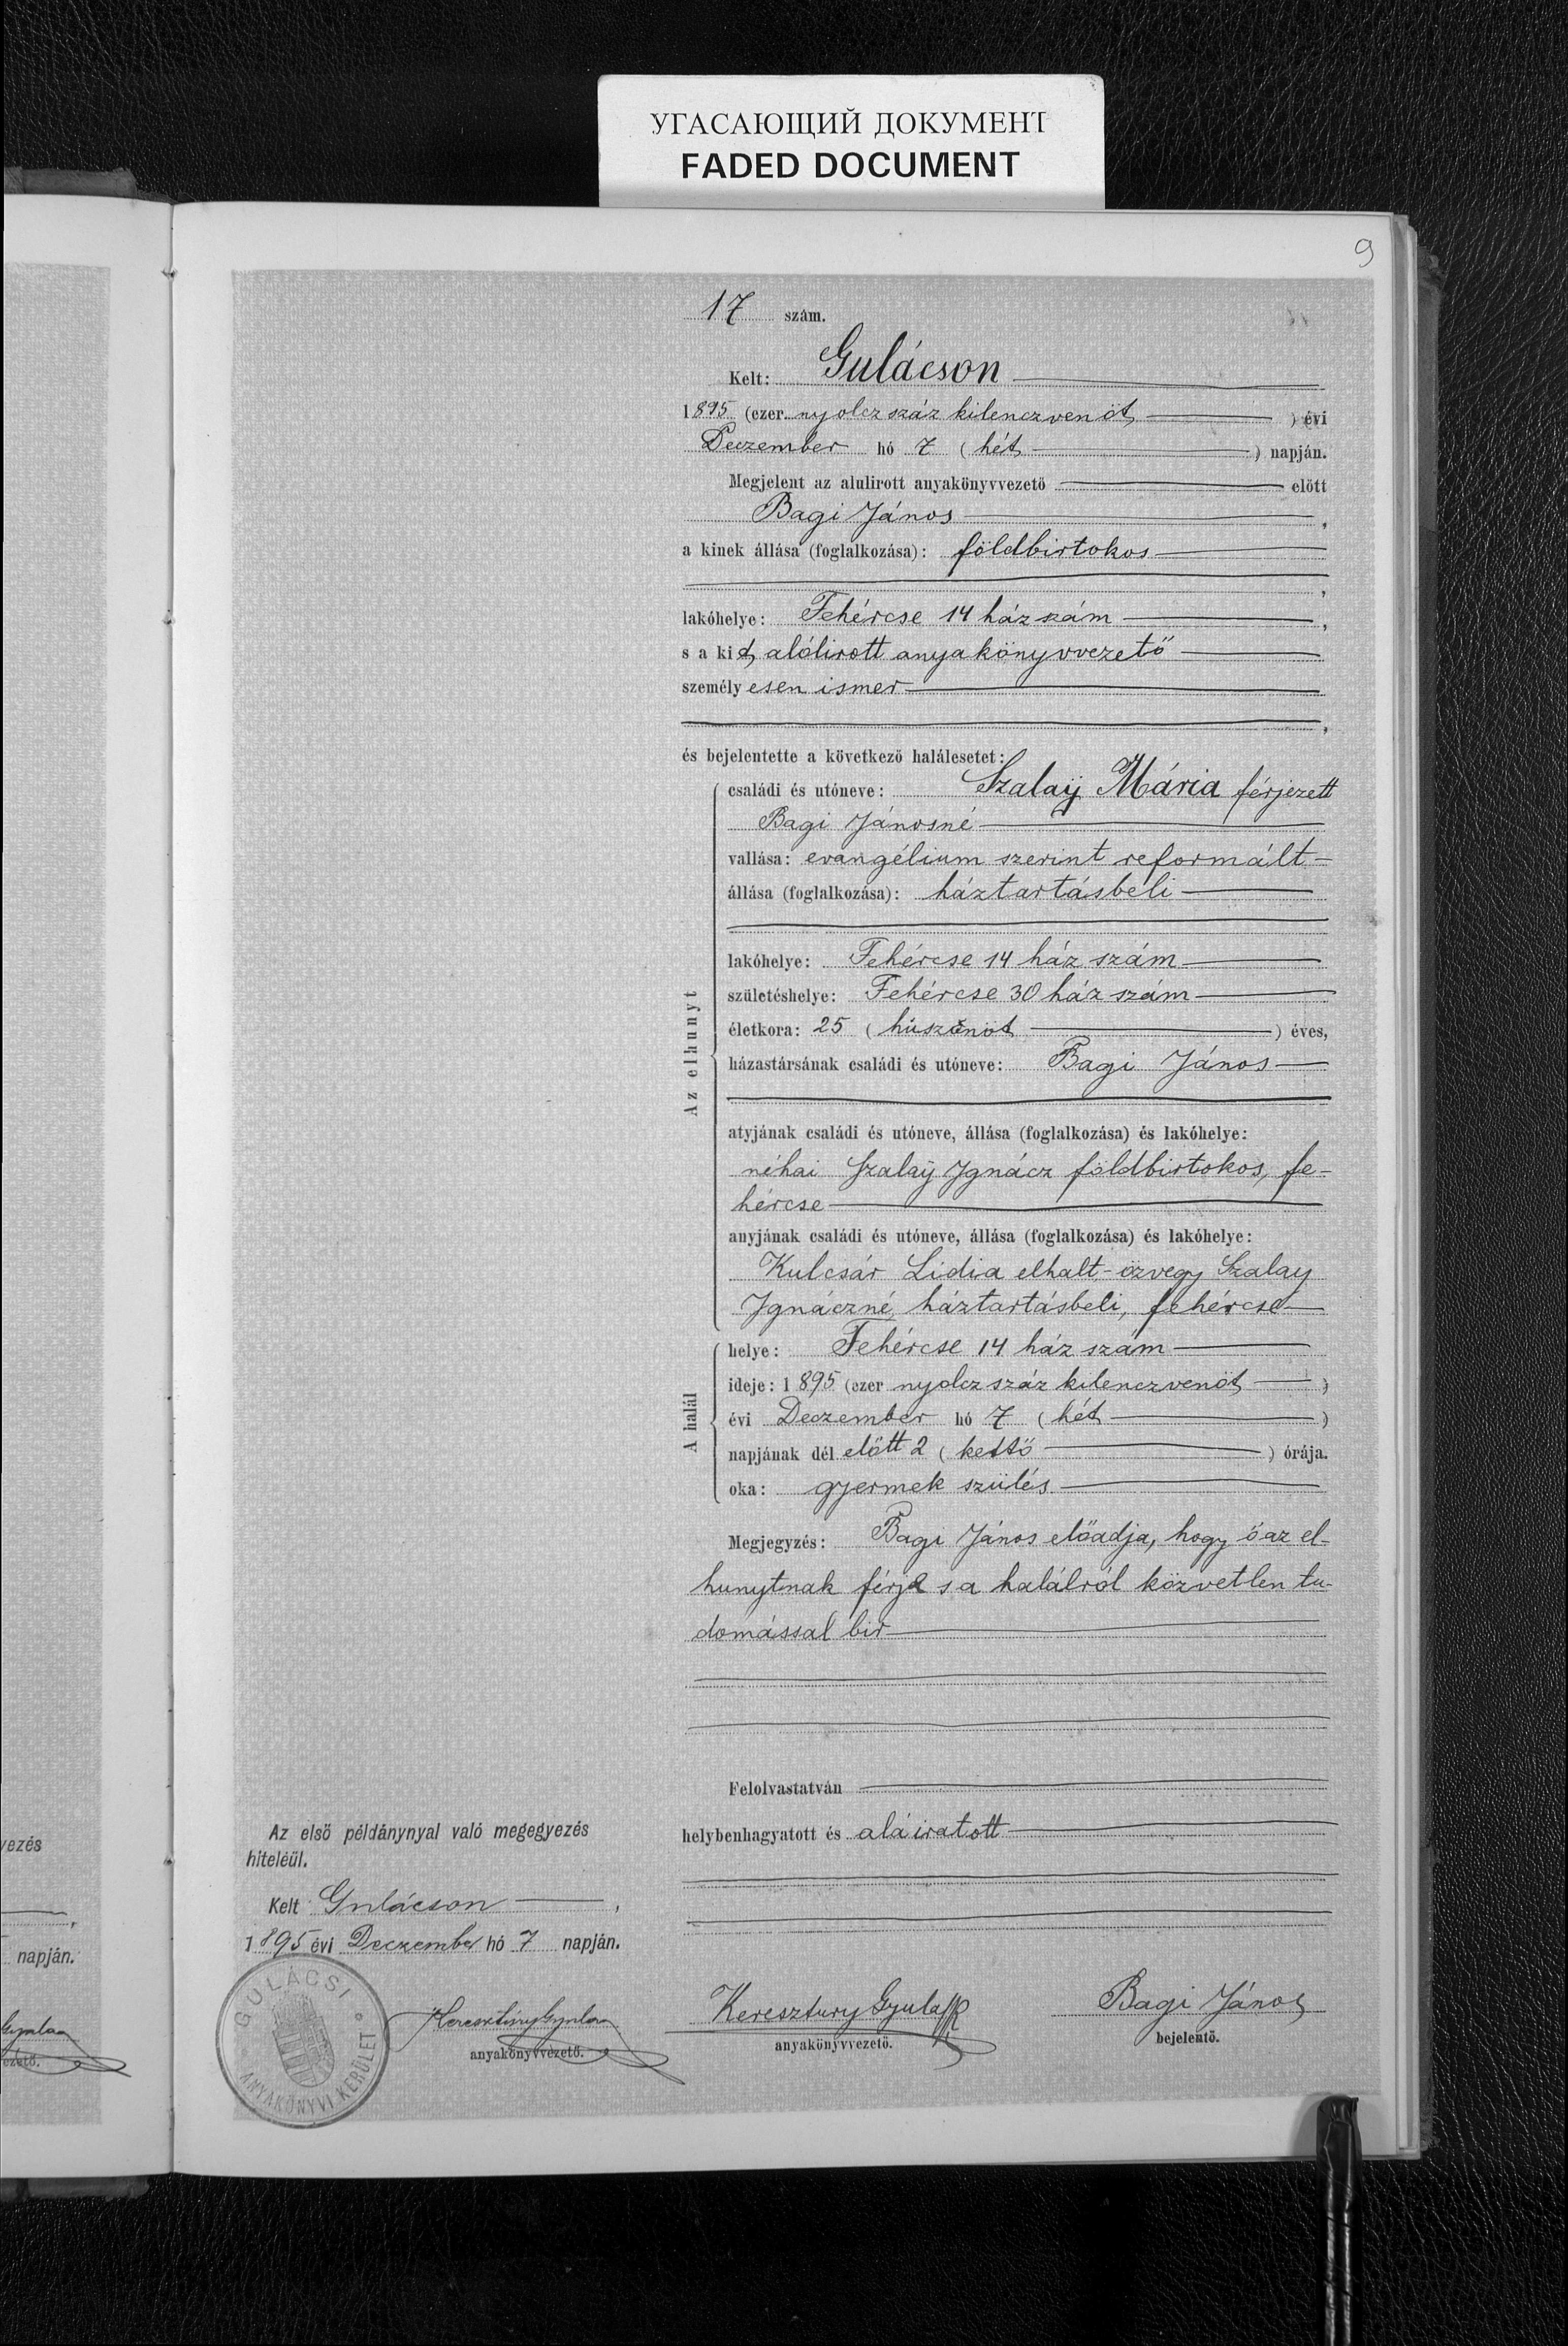 УГАСАЮЩИЙ ДОКУМЕНТ
FADED DOCUMENT
9
17 szám.
Kelt: Gulácson
1895 (ezer nyolcz száz kilenczvenöt ) évi
Deczember hó 7 (hét ) napján.
Megjelent az alulirott anyakönyvvezető előtt
Bagi János ,
a kinek állása (foglalkozása): földbirtokos
,
lakóhelye: Fehércse 14 ház szám ,
s a kit alólirott anyakönyvvezető
személyesen ismer
,
és bejelentette a következő halálesetet:
Az elhunyt
családi és utóneve: Szalaÿ Mária férjezett
Bagi Jánosné
vallása: evangélium szerint reformált
állása (foglalkozása): háztartásbeli
lakóhelye: Fehércse 14 ház szám
születéshelye: Fehércse 30 ház szám
életkora: 25 (húszonöt ) éves,
házastársának családi és utóneve: Bagi János
atyjának családi és utóneve, állása (foglalkozása) és lakóhelye:
néhai Szalaÿ Ignácz földbirtokos, fe-
hércse
anyjának családi és utóneve, állása (foglalkozása) és lakóhelye:
Kulcsár Lidia elhalt- özvegy Szalay
Ignáczné, háztartásbeli, fehércse
A halál
helye: Fehércse 14 ház szám
ideje: 1895 (ezer nyolcz száz kilenczvenöt )
évi Deczember hó 7 (hét )
napjának dél előtt 2 (kettő ) órája.
oka: gyermek szülés
Megjegyzés: Bagi János előadja, hogy ő az el-
hunytnak férje s a halálról közvetlen tu-
domással bir
Felolvastatván
helybenhagyatott és aláiratott
Keresztury Gyula
anyakönyvvezető.
Bagi János
bejelentő.
Az első példánynyal való megegyezés
hiteléül.
Kelt Gulácson ,
1895 évi Deczember hó 7 napján.
Keresztúry Gyula
anyakönyvvezető.
GULÁCSI
ANYAKÖNYVI KERÜLET
vezés
,
napján.
Gyula
ezető.